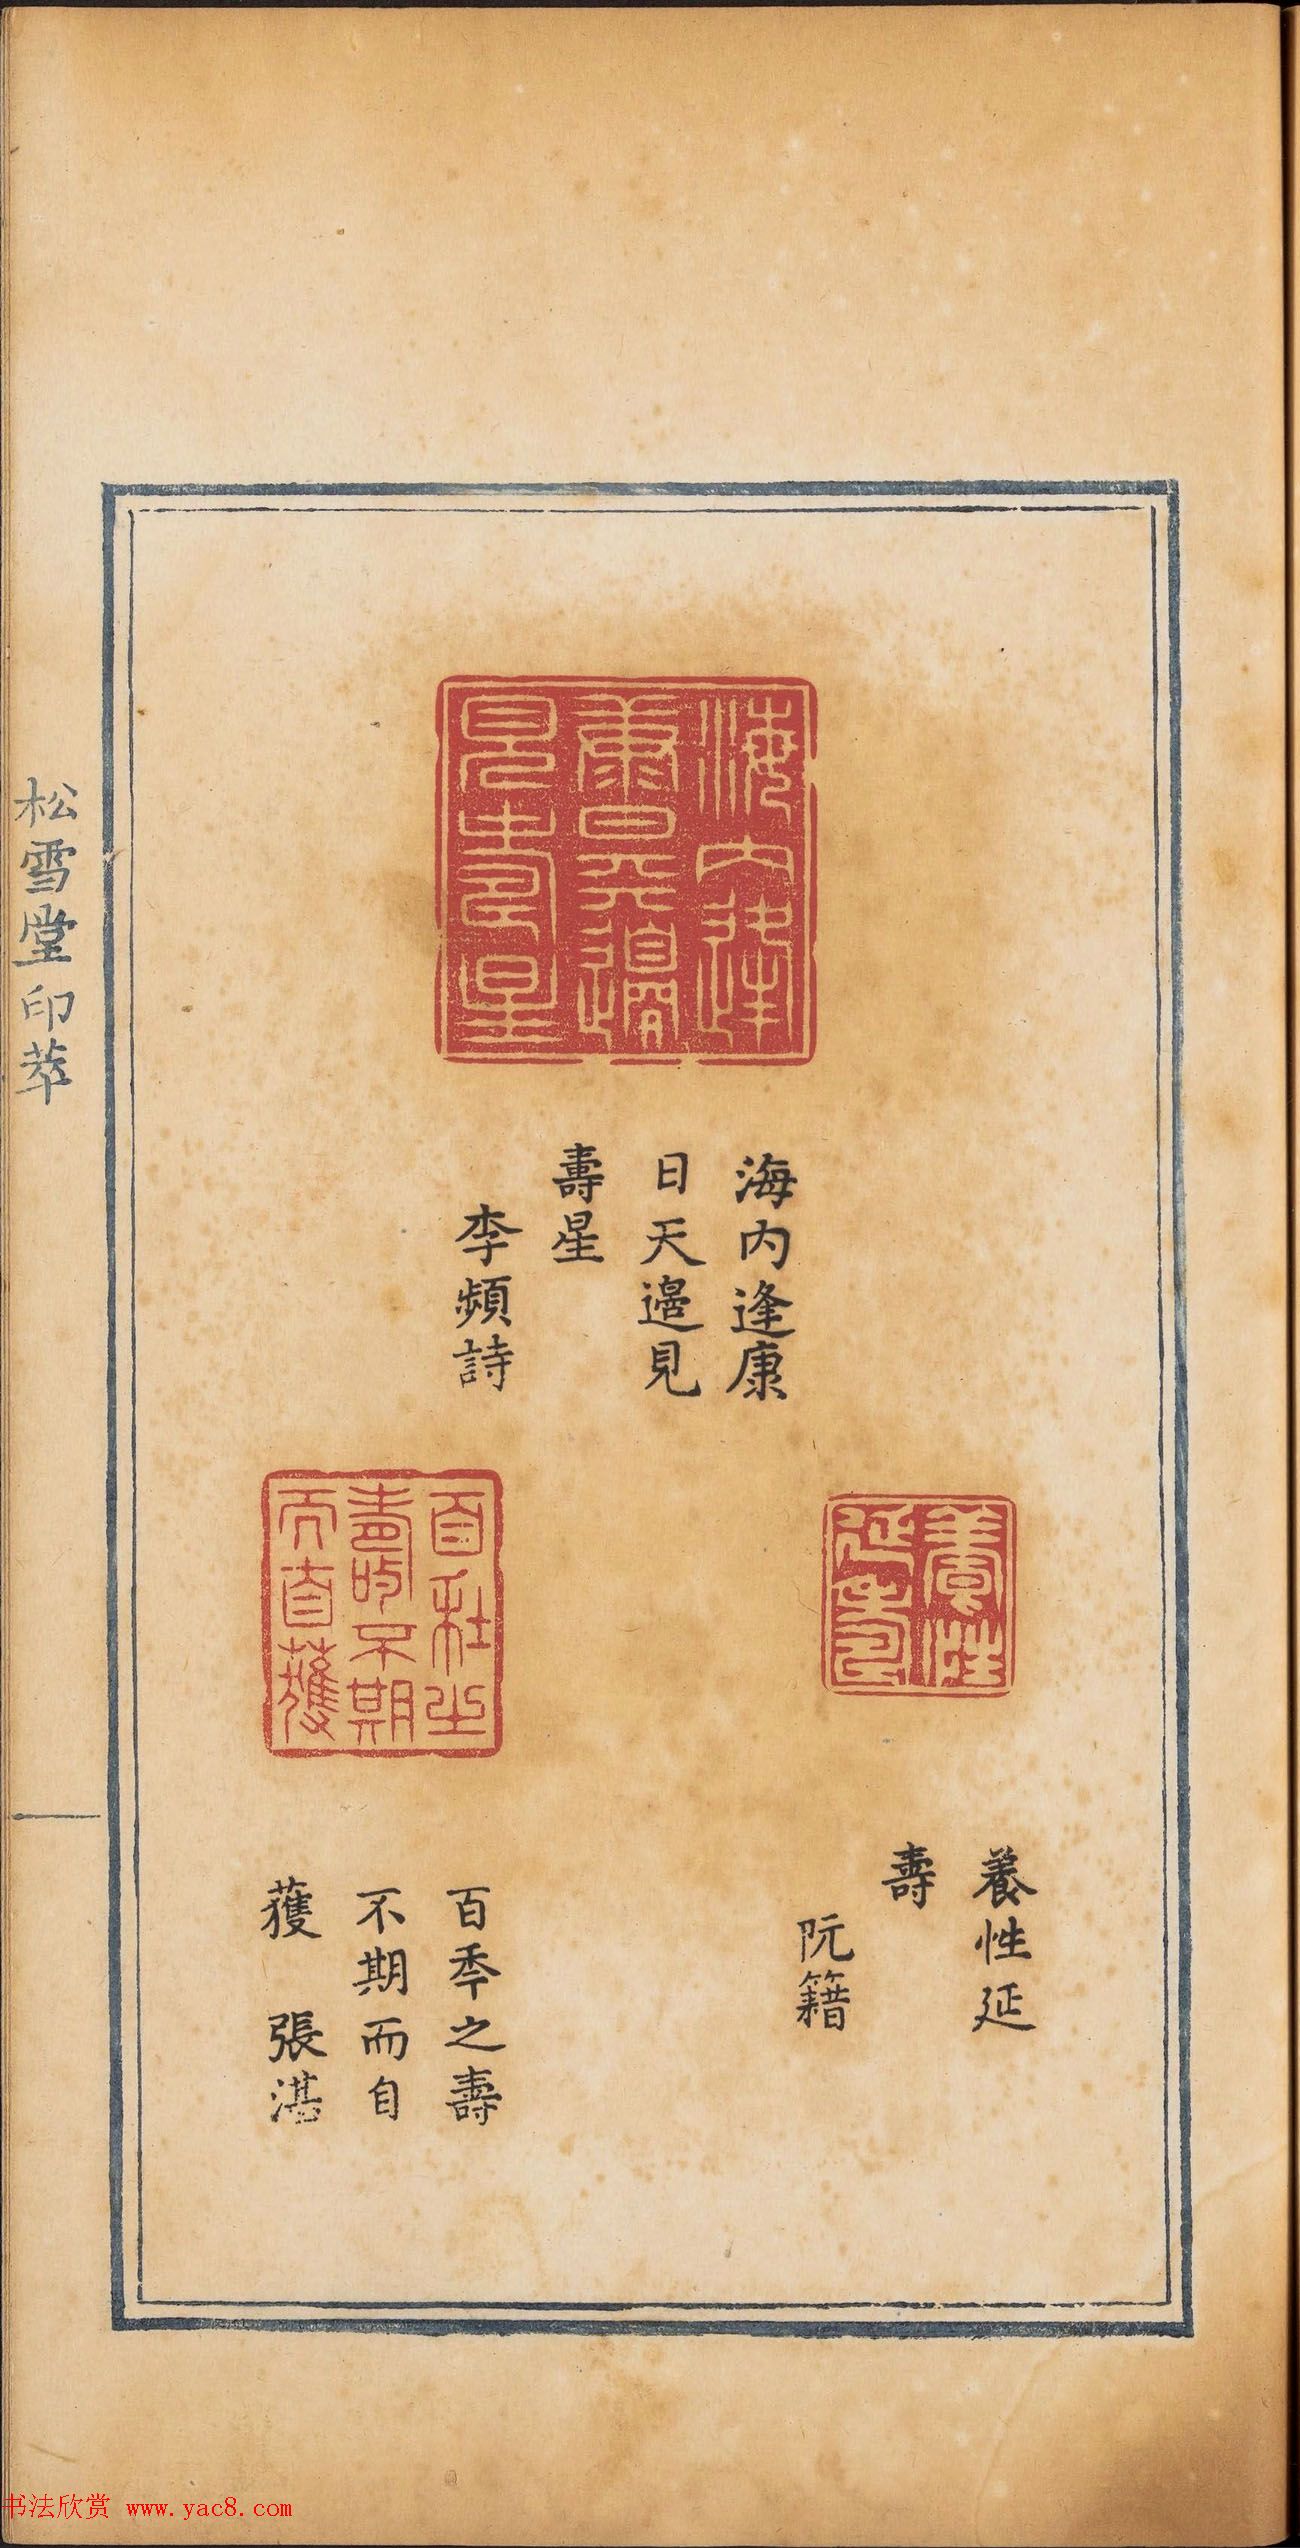 海内逢
康日天邊
見壽星
海内逢康
日天邊見
壽星
李頻詩
養性
延壽
養性延
壽
阮籍
百秊之
壽不期
而自蒦
百秊之壽
不期而自
蒦 張湛
松雪堂印萃
书法欣赏 www.yac8.com